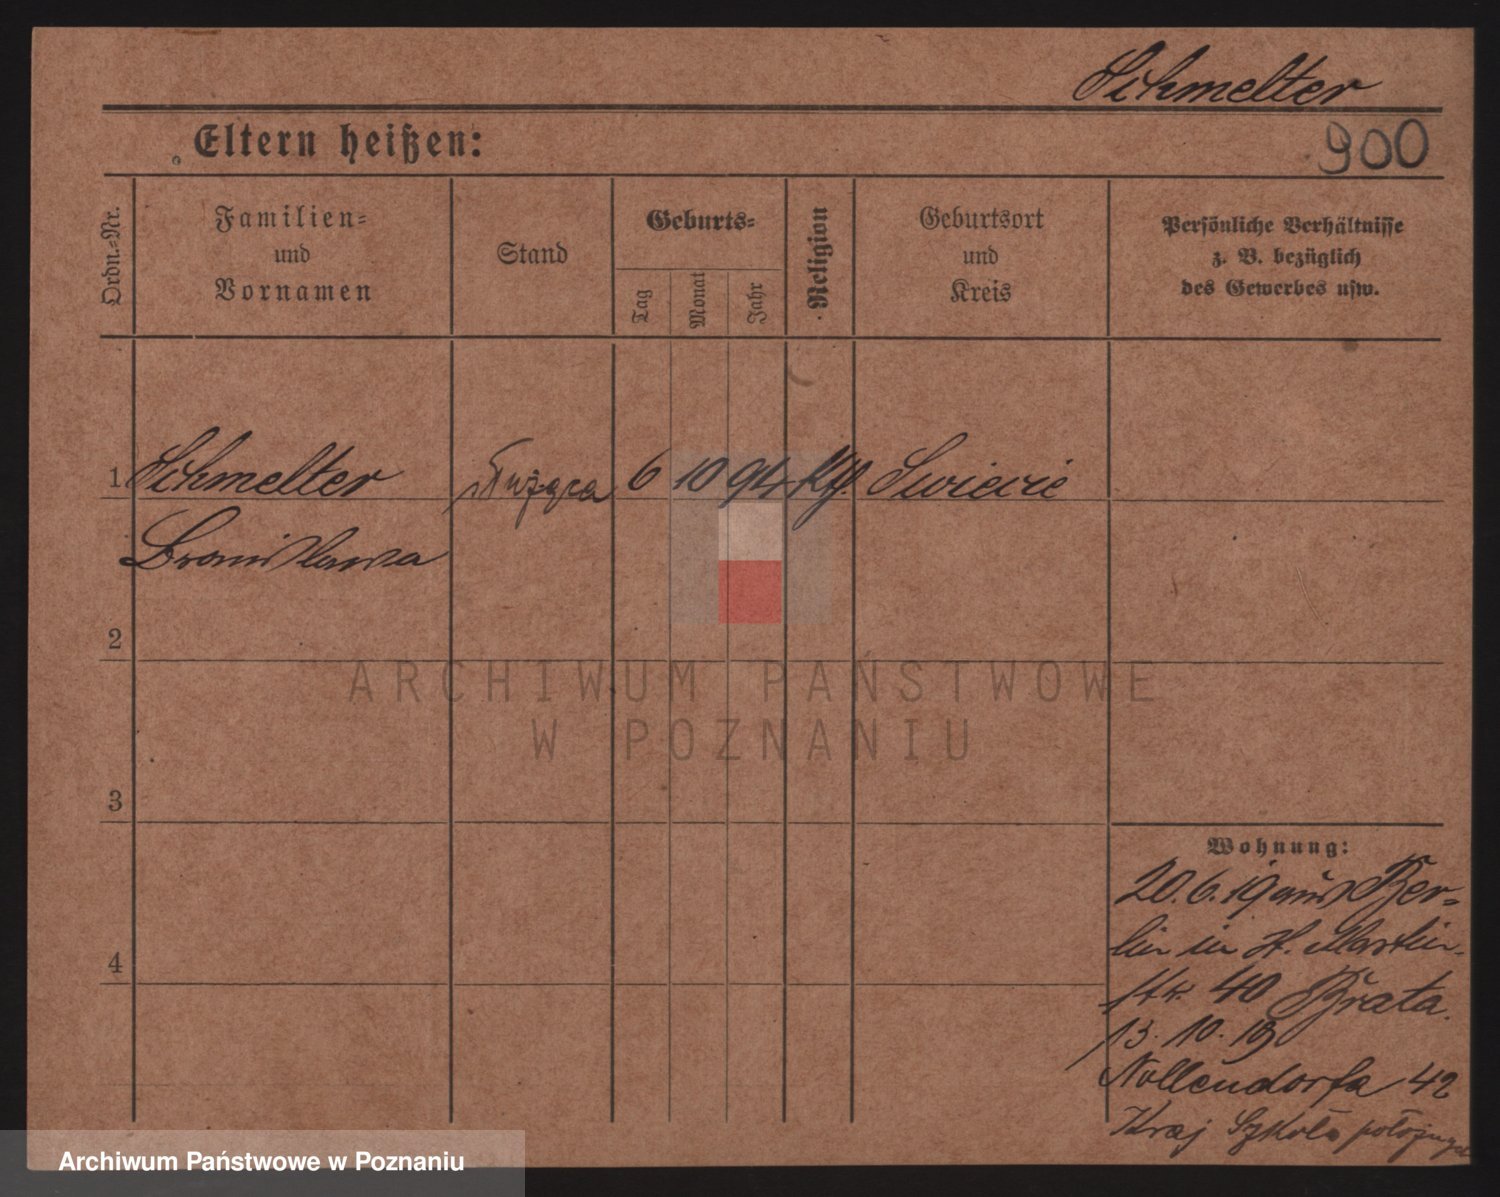 Schmelter
Eltern heißen:
900
Ordn.-Nr.
Familien-
und
Vornamen
Stand
Geburts-
Tag
Monat
Jahr
Religion
Geburtsort
und
Kreis
Persönliche Verhältnisse
z. B. bezüglich
des Gewerbes usw.
1 Schmelter służąca 6 10 94 Swiecie
Bronisława
2
3
4
ARCHIWUM PAŃSTWOWE
W POZNANIU
Wohnung:
20.6.19 aus Ber-
lin in St. Martin-
str. 40 Brata.
13.10.19
Nollendorfa 42
Kraj Szkoła
Archiwum Państwowe w Poznaniu